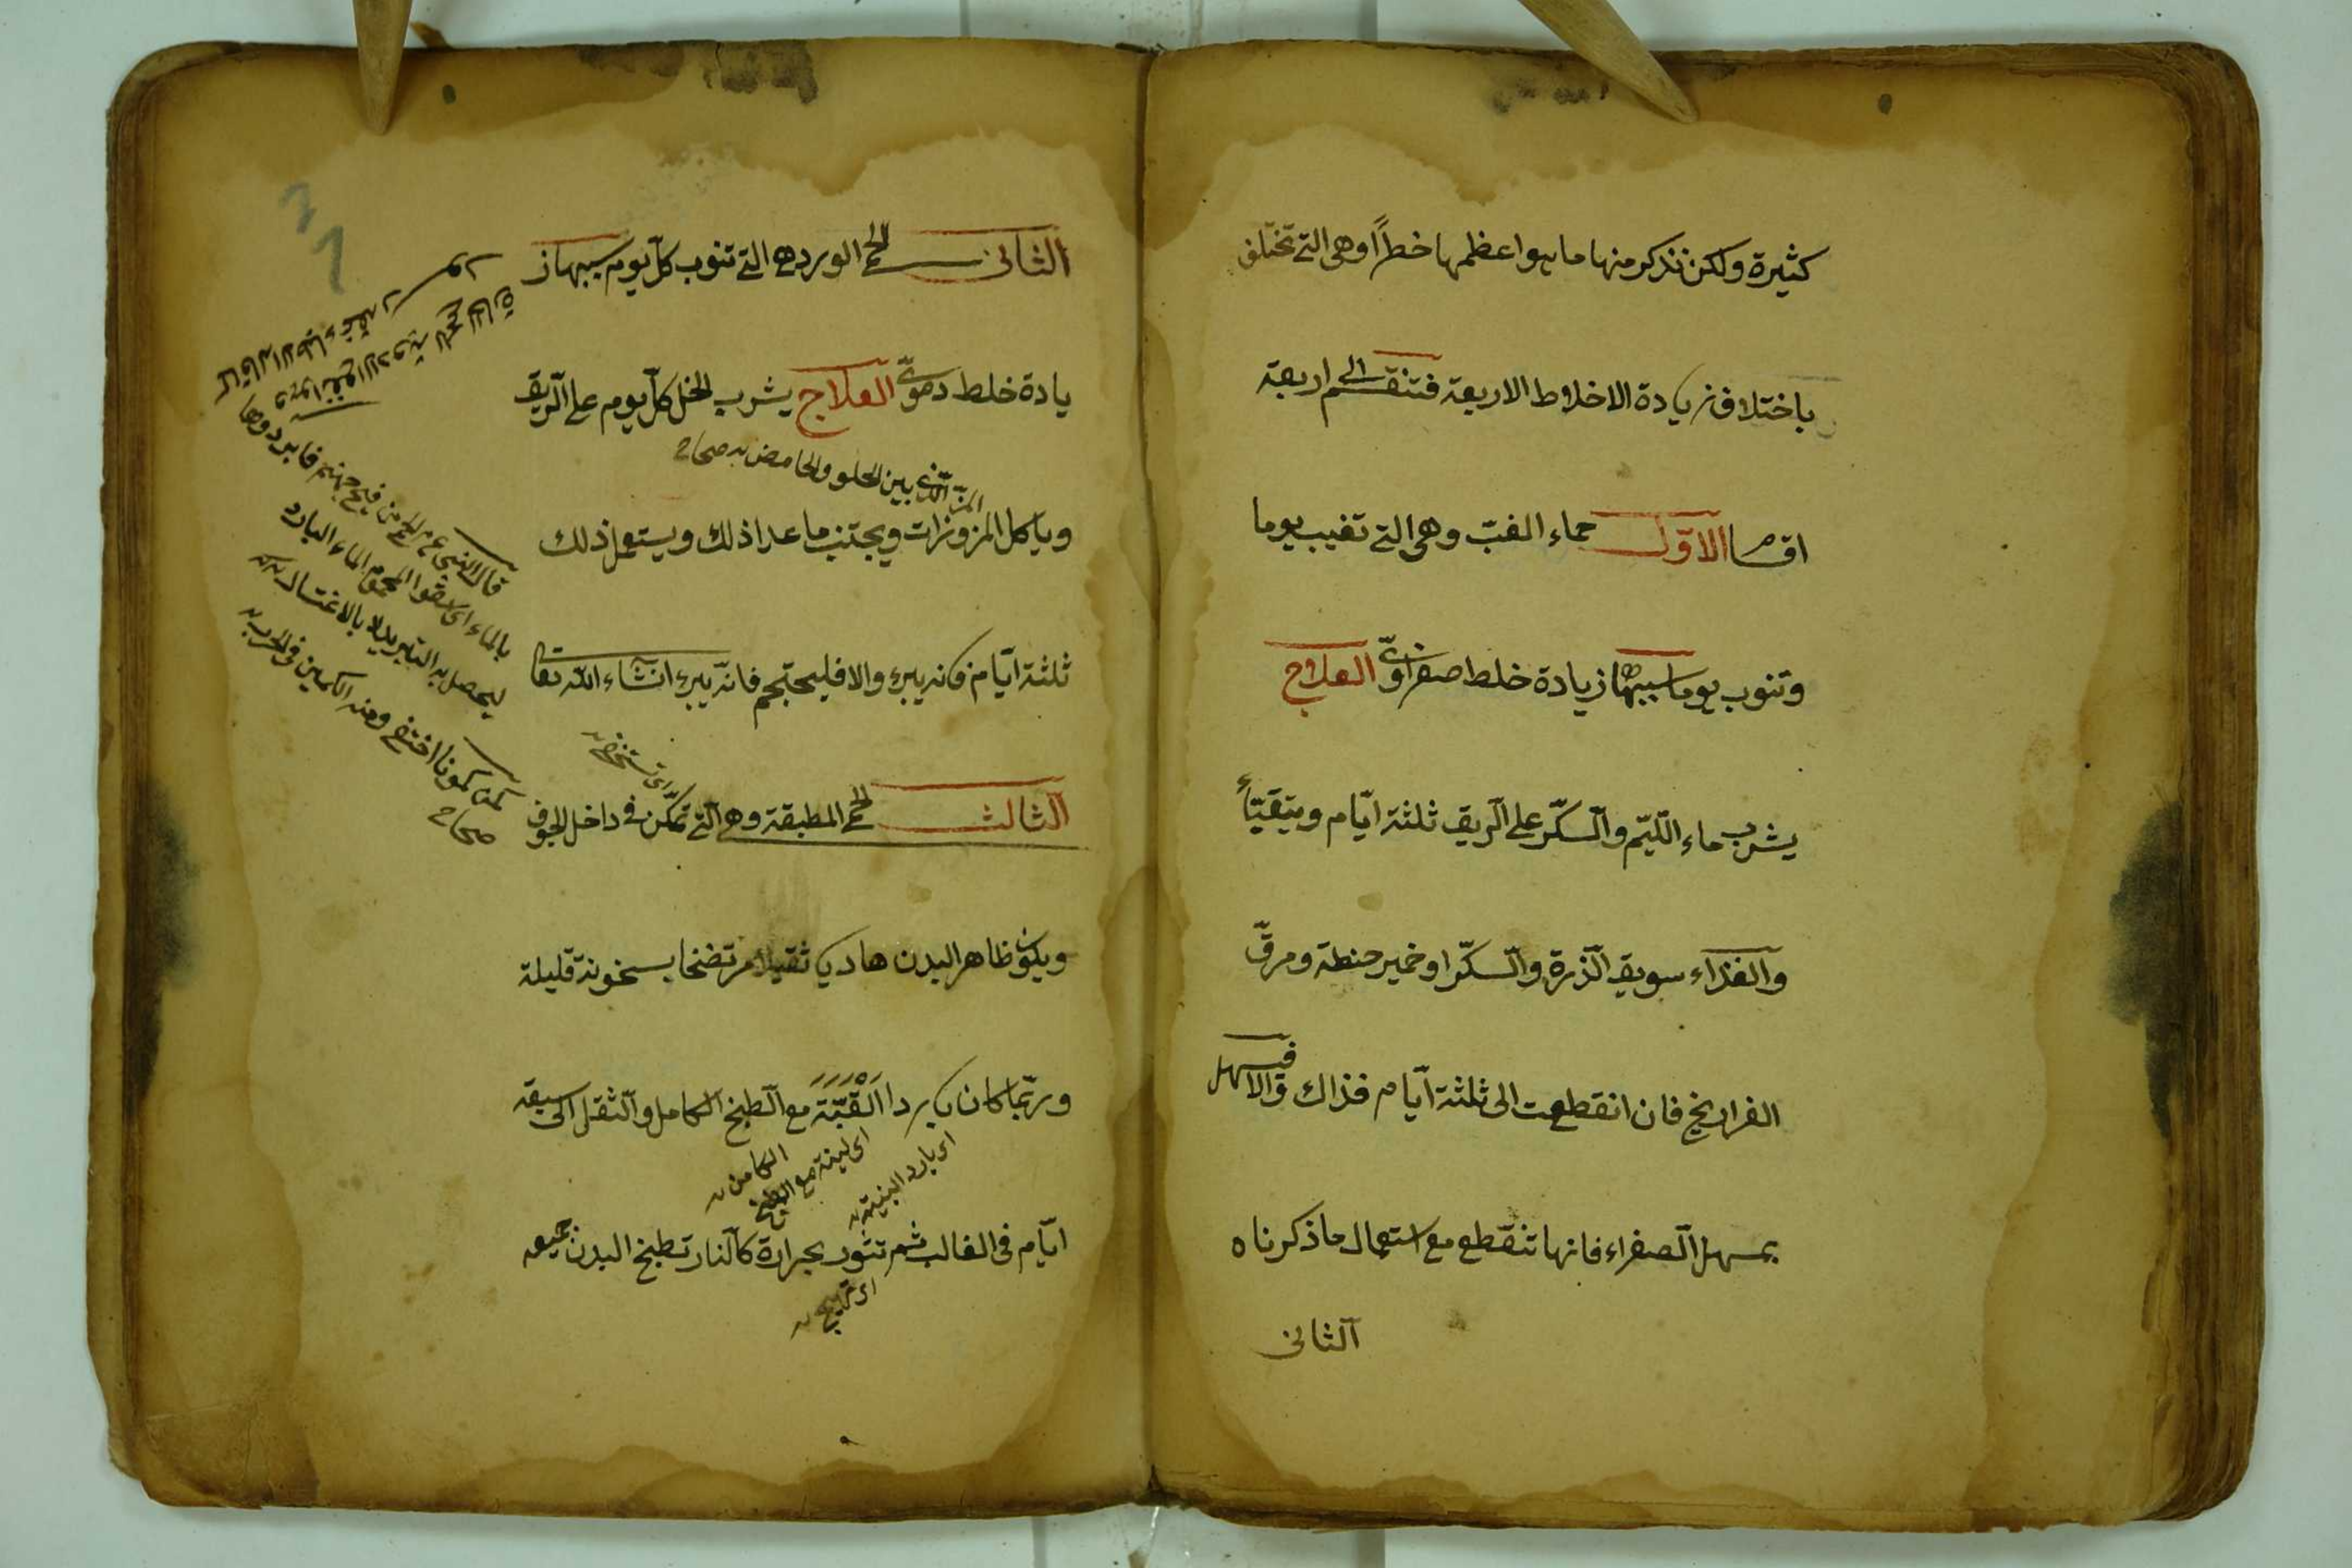 كثيرة ولكن نذكر منها ما هو اعظمها خطرا وهى التى تختلف
باختلاف زيادة الاخلاط الاربعة فتنقسم الى اربعة
اقسام الاول حماء الغب وهى التى تغيب يوما
وتنوب يوما سببها زيادة خلط صفراوى العلاج
يشرب ماء الليم والسكر على الريق ثلثة ايام ويتقيّأ
والغذاء سويق الذرة والسكر او خمير حنطة ومرق
الفراريخ فان انقطعت الى ثلثة ايام فذاك والا فيسهل
بمسهل الصفراء فانها تنقطع مع استعمال ما ذكرناه
الثانى
الثانى الحمى الورد وهى التى تنوب كل يوم سببها ز
يادة خلط دموى العلاج يشرب الخل كل يوم على الريق
المزّ الذى بين الحلو والحامض صحاح
وياكل المزوزات ويجتنب ما عدا ذلك ويستعمل ذلك
ثلثة ايام فانه يبرء والا فليحتجم فانه يبرء انشاء الله تعا
اى تشخص
الثالث الحمى المطبقة وهى التى تمكن فى داخل الجوف
ويكون ظاهر البدن هاديا ثقيلا مرتضخا بسخونة قليلة
وربما كان باردا القبة مع الطبخ الكامل والثقل الى سبعة
اى بارد البنية
اى لينة مع الطبخ
الكامن
ايام فى الغالب ثم تثور بحرارة كالنار تطبخ البدن جميعه
اى تهيج
قال النبى ع م الحمى من فيح جهنم فابردوها
بالماء اى اسقوا المحموم الماء البارد
ليحصل به التبريد لا بالاغتسال
كمن كمونا اختفى ومنه الكمين فى الحرب
صحاح